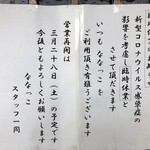 新型コロナウイルス感染症の
影響を考慮し臨時休業と
させて頂いてます
いつも ななっこ を
ご利用頂き有難うございます
営業再開は
三月二十八日（土）の予定です
今後ともよろしくお願いします
ななっこ
スタッフ一同